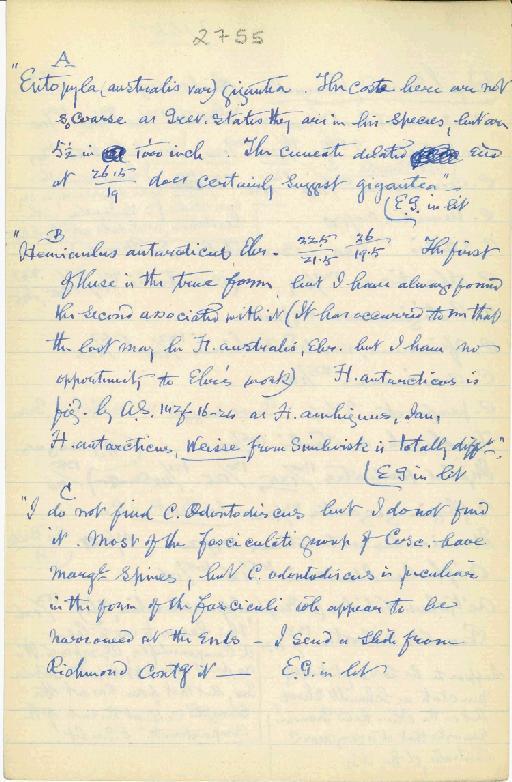 2755
A
"Entopyla (australis var) gigantea. The costae here are not
so coarse as Grev. states they are in his species, but are
5½ in 1/1000 inch. The cuneate dilated end
at 26.5/19 does certainly suggest gigantea" –
(E.G. in lit
B
"Hemiaulus antarcticus, Ehr. 22.5/21.5 26/19.5 The first
of these is the true form, but I have always found
the second associated with it (It has occurred to me that
the last may be H. australis, Ehr. but I have no
opportunity to Ehr's work) H. antarcticus is
fig. by A.S. 142f-16-24 as H. ambiguus, Jan,
H. antarcticus, Weisse from Simbirsk is totally difft".
(E.G in lit
C
"I do not find C. Odontodiscus but I do not find
it. Most of the fasciculati group of Cosc. have
margl spines, but C. odontodiscus is peculiar
in the form of the fasciculi appear to be
narrowed at the ends – I send a slide from
Richmond contg it — E.G. in lit